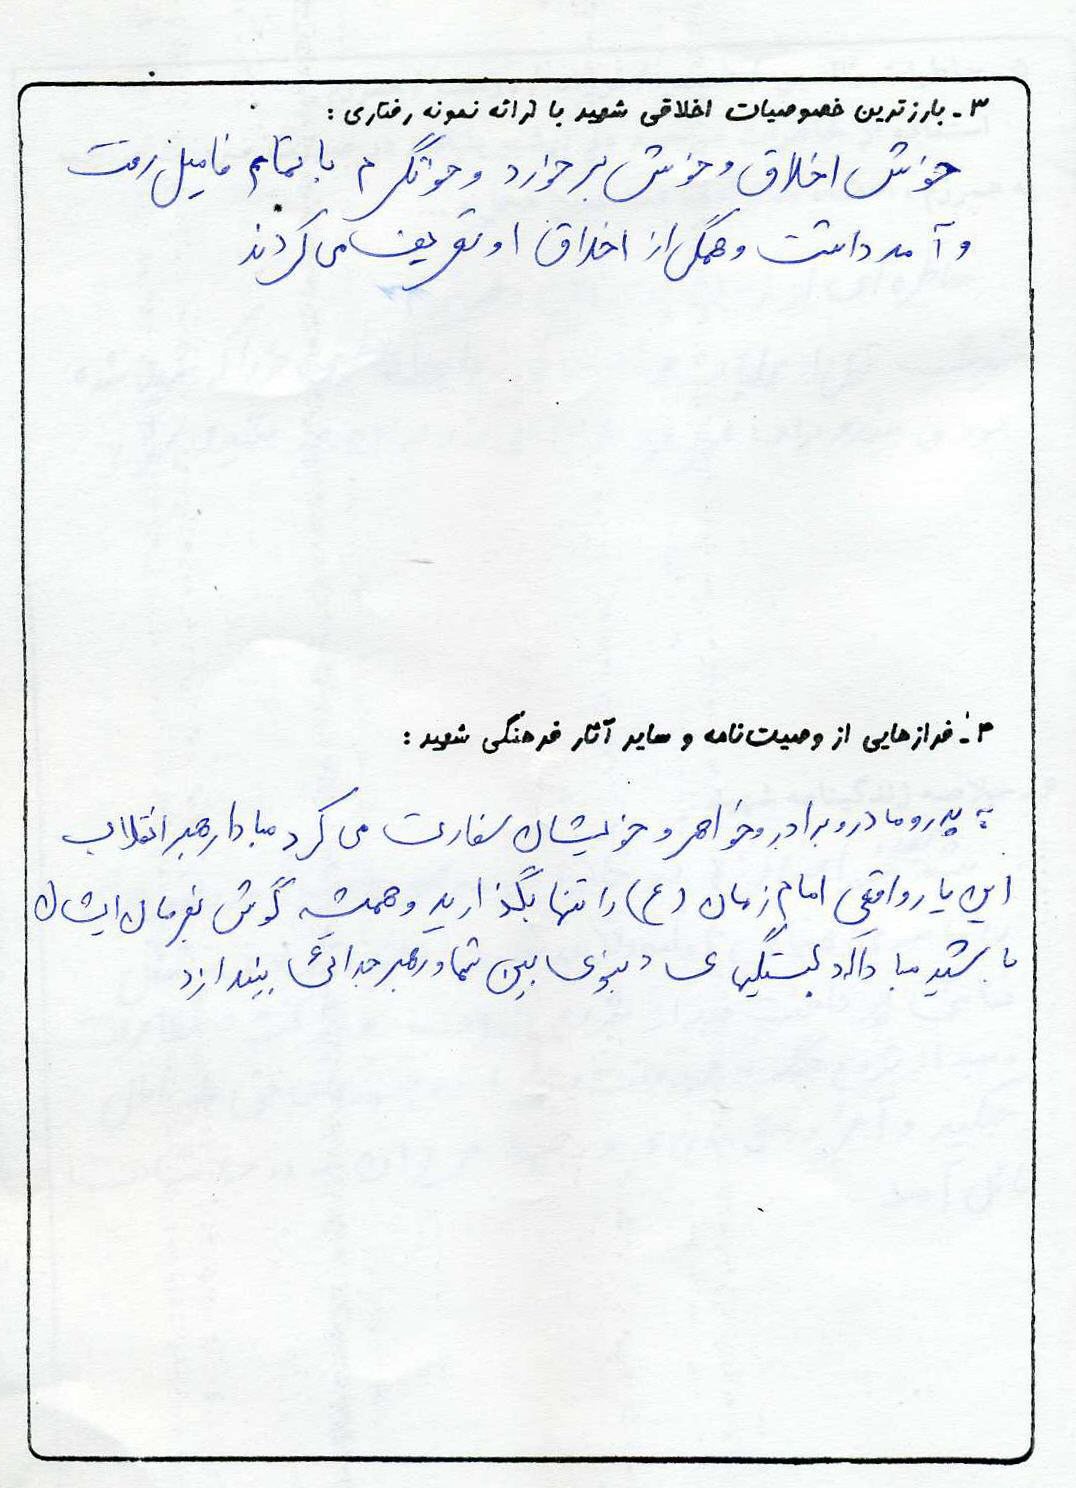 ۳ـ بارزترین خصوصیات اخلاقی شهید با ارائه نمونه رفتاری :
خوش اخلاق و خوش برخورد و خونگرم با تمام فامیل رفت
و آمد داشت و همگی از اخلاق او تعریف می کردند
۴ـ فرازهایی از وصیت‌نامه و سایر آثار فرهنگی شهید :
به پدر و مادر و برادر و خواهر و خویشان سفارت می کرد مبادا رهبر انقلاب
این یار واقعی امام زمان (ع) را تنها بگذارید و همیشه گوش بفرمان ایشان
باشید مبادا دلبستگیهای دنیوی بین شما و رهبر جدائی بیندازد